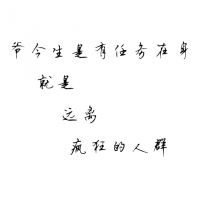 爷今生是有任务在身
就是
远离
疯狂的人群